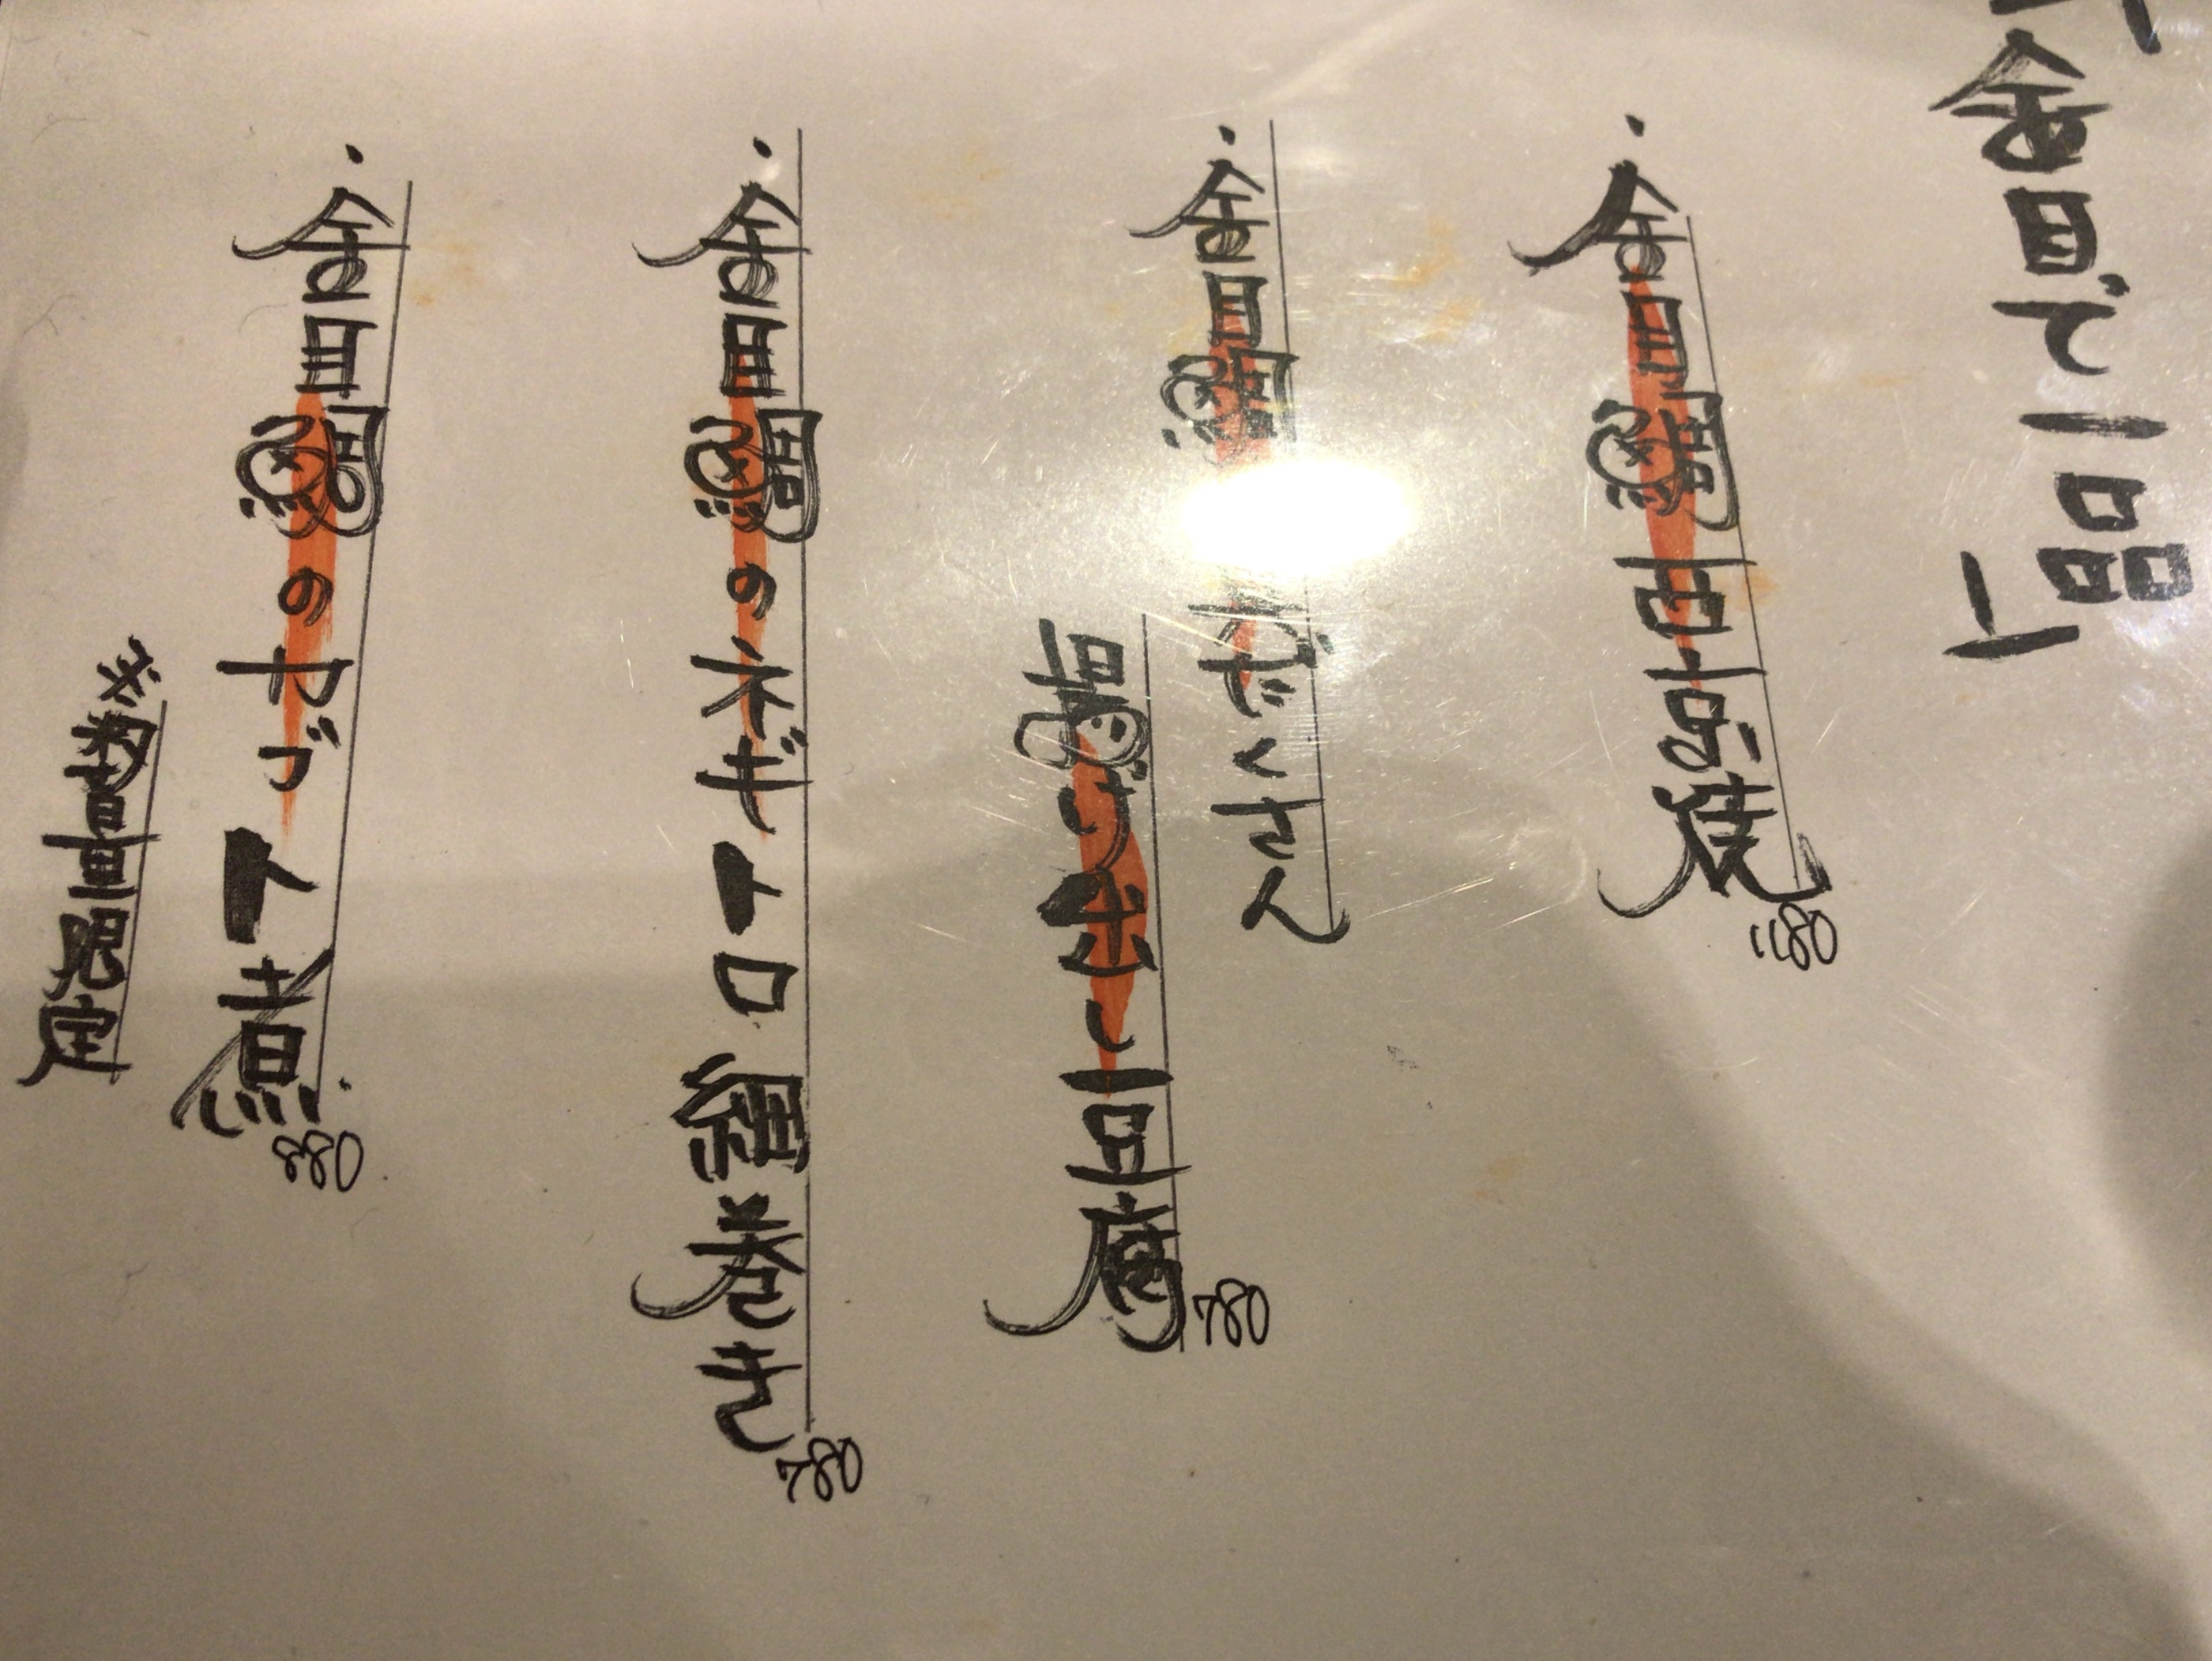 「金目で一品」
・金目鯛西京焼 1180
・金目鯛 だくさん
揚げ出し豆腐 780
・金目鯛のネギトロ細巻き 780
・金目鯛のカブト煮 880
※数量限定